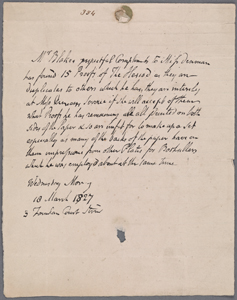 304
Mr Blake's respectful Compliments to Miss Denman
has found 15 Proofs of The Hesiod as they are
duplicates to others which he has they are intirely
at Miss Denmans Service if she will accept of them
what Proofs he has remaining are all printed on both
sides of the Paper & so are unfit for to make up a set
especially as many of the backs of the paper have on
them impressions from other Plates for Booksellers
which he was employd about at the same time
Wednesday Mor-g
18 March 1827
3 Fountain Court Strand